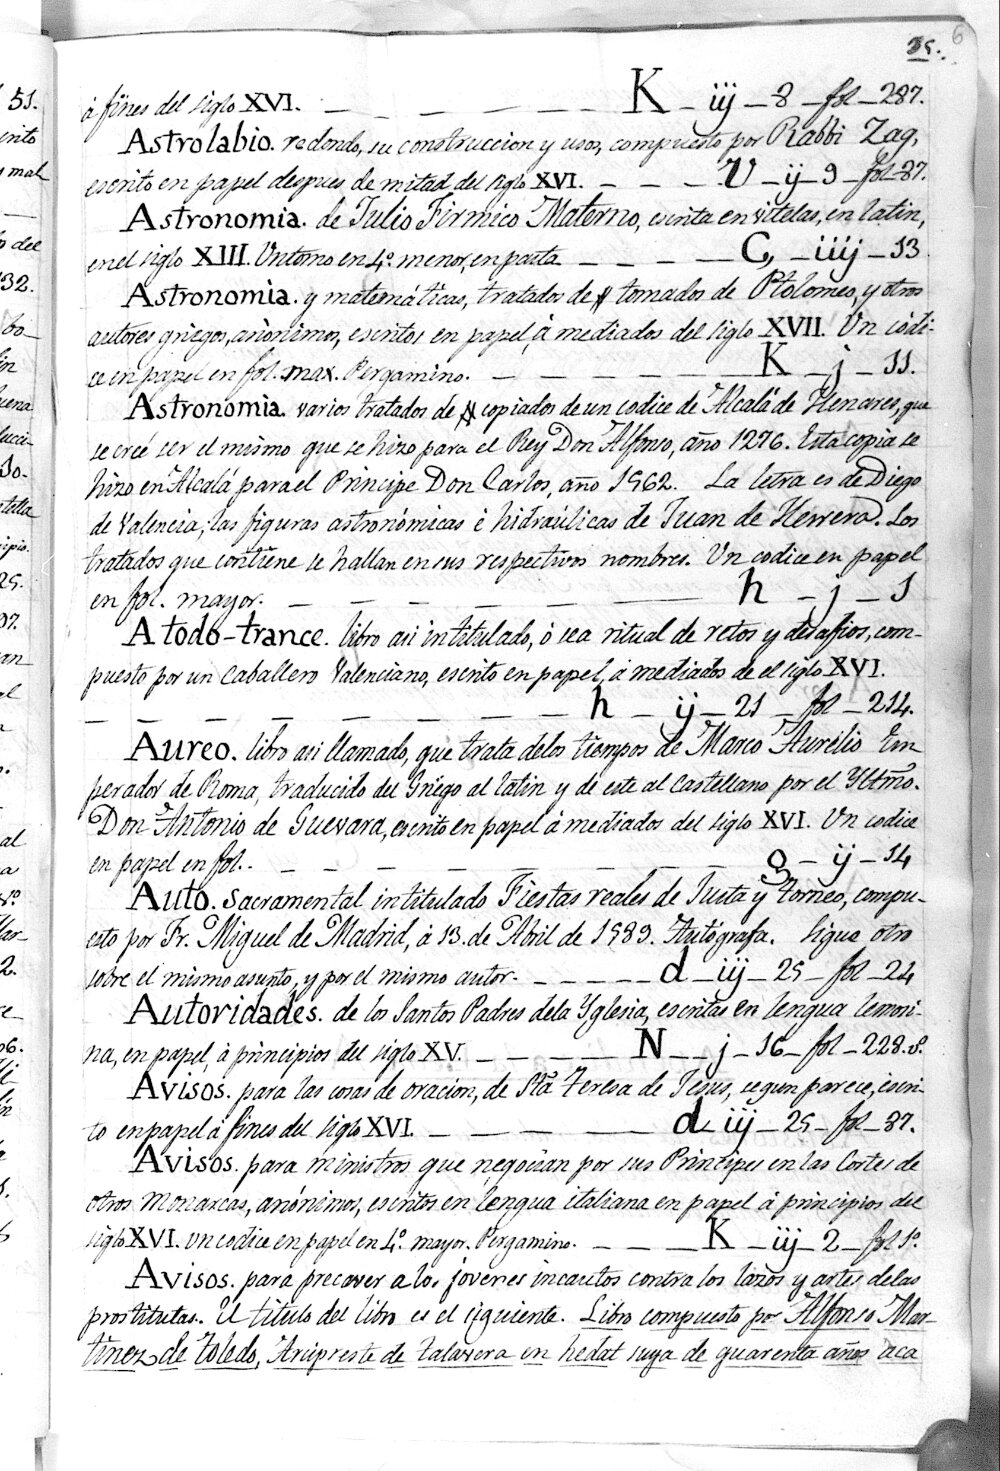 35. 6
à fines del siglo XVI. _ _ _ _ _ K _ iij _ 8 _ fol _ 287.
Astrolabio. redondo, su construccion y usos, compuesto por Rabbi Zag,
escrito en papel despues de mitad del siglo XVI. _ _ _ _ V _ ij _ 9 _ fol _ 87.
Astronomia. de Julio Firmico Materno, escrita en vitelas, en latin,
en el siglo XIII. Un tomo en 4º menor, en pasta _ _ _ _ C, _ iiij _ 13
Astronomia. y matemáticas, tratados de tomados de Ptolomeo, y otros
autores griegos, anònimos, escritos en papel, à mediados del siglo XVII. Un códi-
ce en papel en fol. max. Pergamino. _ _ _ _ _ K _ j _ 11.
Astronomia. varios tratados de copiados de un codice de Alcalá de Henares, que
se creé ser el mismo que se hizo para el Rey Don Alfonso, año 1276. Esta copia se
hizo en Alcalá para el Principe Don Carlos, año 1562. La letra es de Diego
de Valencia; las figuras astronómicas è hidraúlicas de Juan de Herrera. Los
tratados que contiene se hallan en sus respectivos nombres. Un codice en papel
en fol. mayor. _ _ _ _ _ _ h _ j _ 1
A todo-trance. libro asi intitulado, ò sea ritual de retos y desafios, com-
puesto por un Caballero Valenciano, escrito en papel, à mediados de el siglo XVI.
_ _ _ _ _ _ _ h _ ij _ 21 _ fol _ 214.
Aureo. libro asi llamado, que trata delos tiempos de Marco Aurelio Em
perador de Roma, traducido del Griego al latin y de este al Castellano por el Yltmo.
Don Antonio de Guevara, escrito en papel à mediados del siglo XVI. Un codice
en papel en fol. _ _ _ _ _ _ _ g _ ij _ 14
Auto. Sacramental intitulado Fiestas reales de Justa y Torneo, compu-
esto por Fr. Miguel de Madrid, à 13. de Abril de 1589. Autógrafa. Sigue otro
sobre el mismo asunto, y por el mismo autor. _ _ _ _ _ d _ iij _ 25 _ fol _ 24
Autoridades. de los Santos Padres dela Yglesia, escritas en lengua lemosi-
na, en papel, à principios del siglo XV. _ _ _ _ _ N _ j _ 16 _ fol _ 228. v.
Avisos. para las cosas de oracion, de Sta Teresa de Jesus, segun parece, escri-
to en papel à fines del siglo XVI. _ _ _ _ _ _ d _ iij _ 25 _ fol _ 87.
Avisos. para ministros que negocian por sus Principes en las Cortes de
otros monarcas, anónimos, escritos en lengua italiana en papel à principios del
siglo XVI. un codice en papel en 4º. mayor. Pergamino. _ _ _ _ K _ iij _ 2 _ fol 1º.
Avisos. para precaver a los jovenes incautos contra los lazos y artes delas
prostitutas. El titulo del libro es el siguiente. Libro compuesto por Alfonso Mar-
tinez de Toledo, Arcipreste de talavera en hedat suya de quarenta años aca